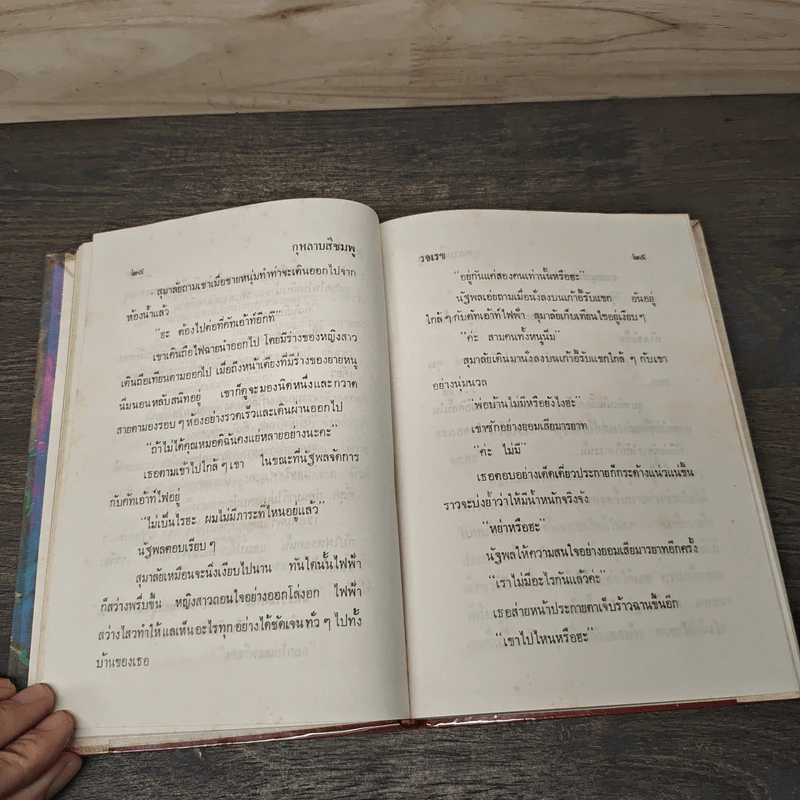 กุหลาบสีชมพู
๒๔
สุมาลัยถามเขาเมื่อชายหนุ่มทำท่าจะเดินออกไปจาก
ห้องน้ำแล้ว
“ฮะ ต้องไปต่อที่คัทเอ้าท์อีกที”
เขาเดินถือไฟฉายนำออกไป โดยมีร่างของหญิงสาว
เดินถือเทียนตามออกไป เมื่อถึงหน้าเตียงที่มีร่างของยายหนู
นีมนอนหลับสนิทอยู่ เขาก็ดูจะมองนิดหนึ่งและกวาด
สายตามองรอบ ๆ ห้องอย่างรวดเร็วและเดินผ่านออกไป
“ถ้าไม่ได้คุณหมอดิฉันคงแย่หลายอย่างนะคะ”
เธอตามเข้าไปใกล้ ๆ เขา ในขณะที่นัฐพลจัดการ
กับคัทเอ้าท์ไฟอยู่
“ไม่เป็นไรฮะ ผมไม่มีภาระที่ไหนอยู่แล้ว”
นัฐพลตอบเรียบ ๆ
สุมาลัยเหมือนจะนิ่งเงียบไปนาน ทันใดนั้นไฟฟ้า
ก็สว่างพรึ่บขึ้น หญิงสาวถอนใจอย่างออกโล่งอก ไฟฟ้า
สว่างไสวทำให้แลเห็นอะไรทุกอย่างได้ชัดเจน ทั่ว ๆ ไปทั้ง
บ้านของเธอ
รจเรข
๒๕
“อยู่กันแค่สองคนเท่านั้นหรือฮะ”
นัฐพลเอ่ยถามเมื่อนั่งลงบนเก้าอี้รับแขก อันอยู่
ใกล้ ๆ กับคัทเอ้าท์ไฟฟ้า สุมาลัยเก็บเทียนไขอยู่เงียบ ๆ
“ค่ะ สามคนทั้งหนูนีม”
สุมาลัยเดินมานั่งลงบนเก้าอี้รับแขกใกล้ ๆ กับเขา
อย่างนุ่มนวล
“พ่อบ้านไม่มีหรือยังไงฮะ”
เขาซักอย่างยอมเสียมารยาท
“ค่ะ ไม่มี”
เธอตอบอย่างเด็ดเดี่ยวประกายก็กระด้างแน่วแน่ขึ้น
ราวจะบ่งย้ำว่าให้มีน้ำหนักจริงจัง
“หย่าหรือฮะ”
นัฐพลให้ความสนใจอย่างยอมเสียมารยาทอีกครั้ง
“เราไม่มีอะไรกันแล้วค่ะ”
เธอส่ายหน้าประกายตาเจ็บร้าวฉานขึ้นอีก
“เขาไปไหนหรือฮะ”